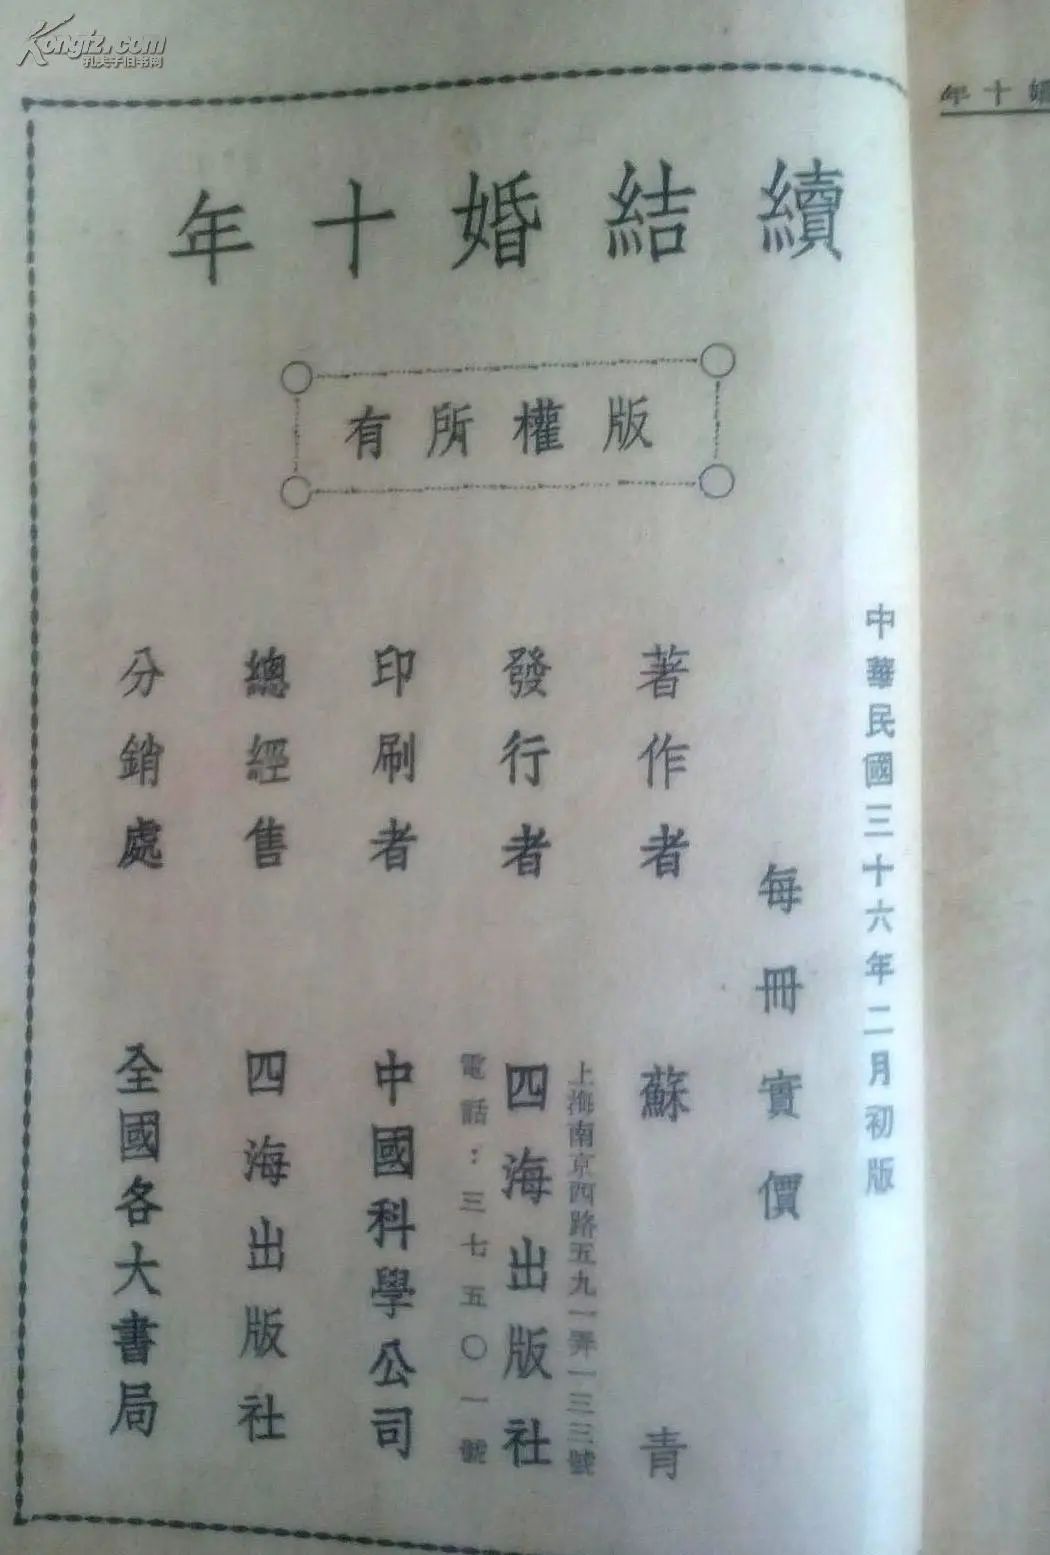 Kongfz.com
孔夫子旧书网
婚十年
續結婚十年
版權所有
中華民國三十六年二月初版
每冊實價
著作者 蘇青
上海南京西路五九一弄一三三號
發行者 四海出版社
電話:三七五〇一號
印刷者 中國科學公司
總經售 四海出版社
分銷處 全國各大書局